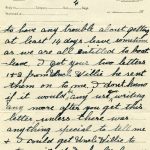 4
to have any trouble about getting
at least 14 days leave sometime
as we are all entitled to boat
leave. I got your two letters
1 & 2 from Uncle Willie he sent
them on to me I don't know
if it would any use writing
any more after you get this
letter unless there was
anything special to tell me
& I could get Uncle Willie to